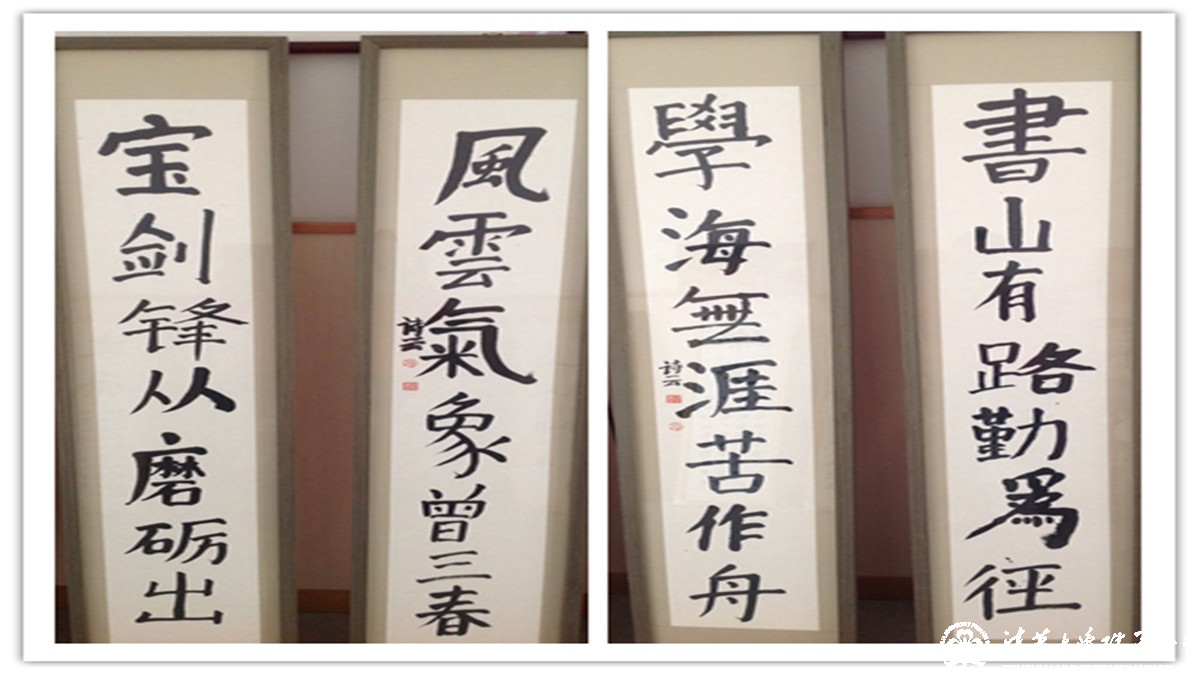 宝剑锋从磨砺出
風雲氣象曾三春
詩云
書山有路勤爲径
學海無涯苦作舟
詩云